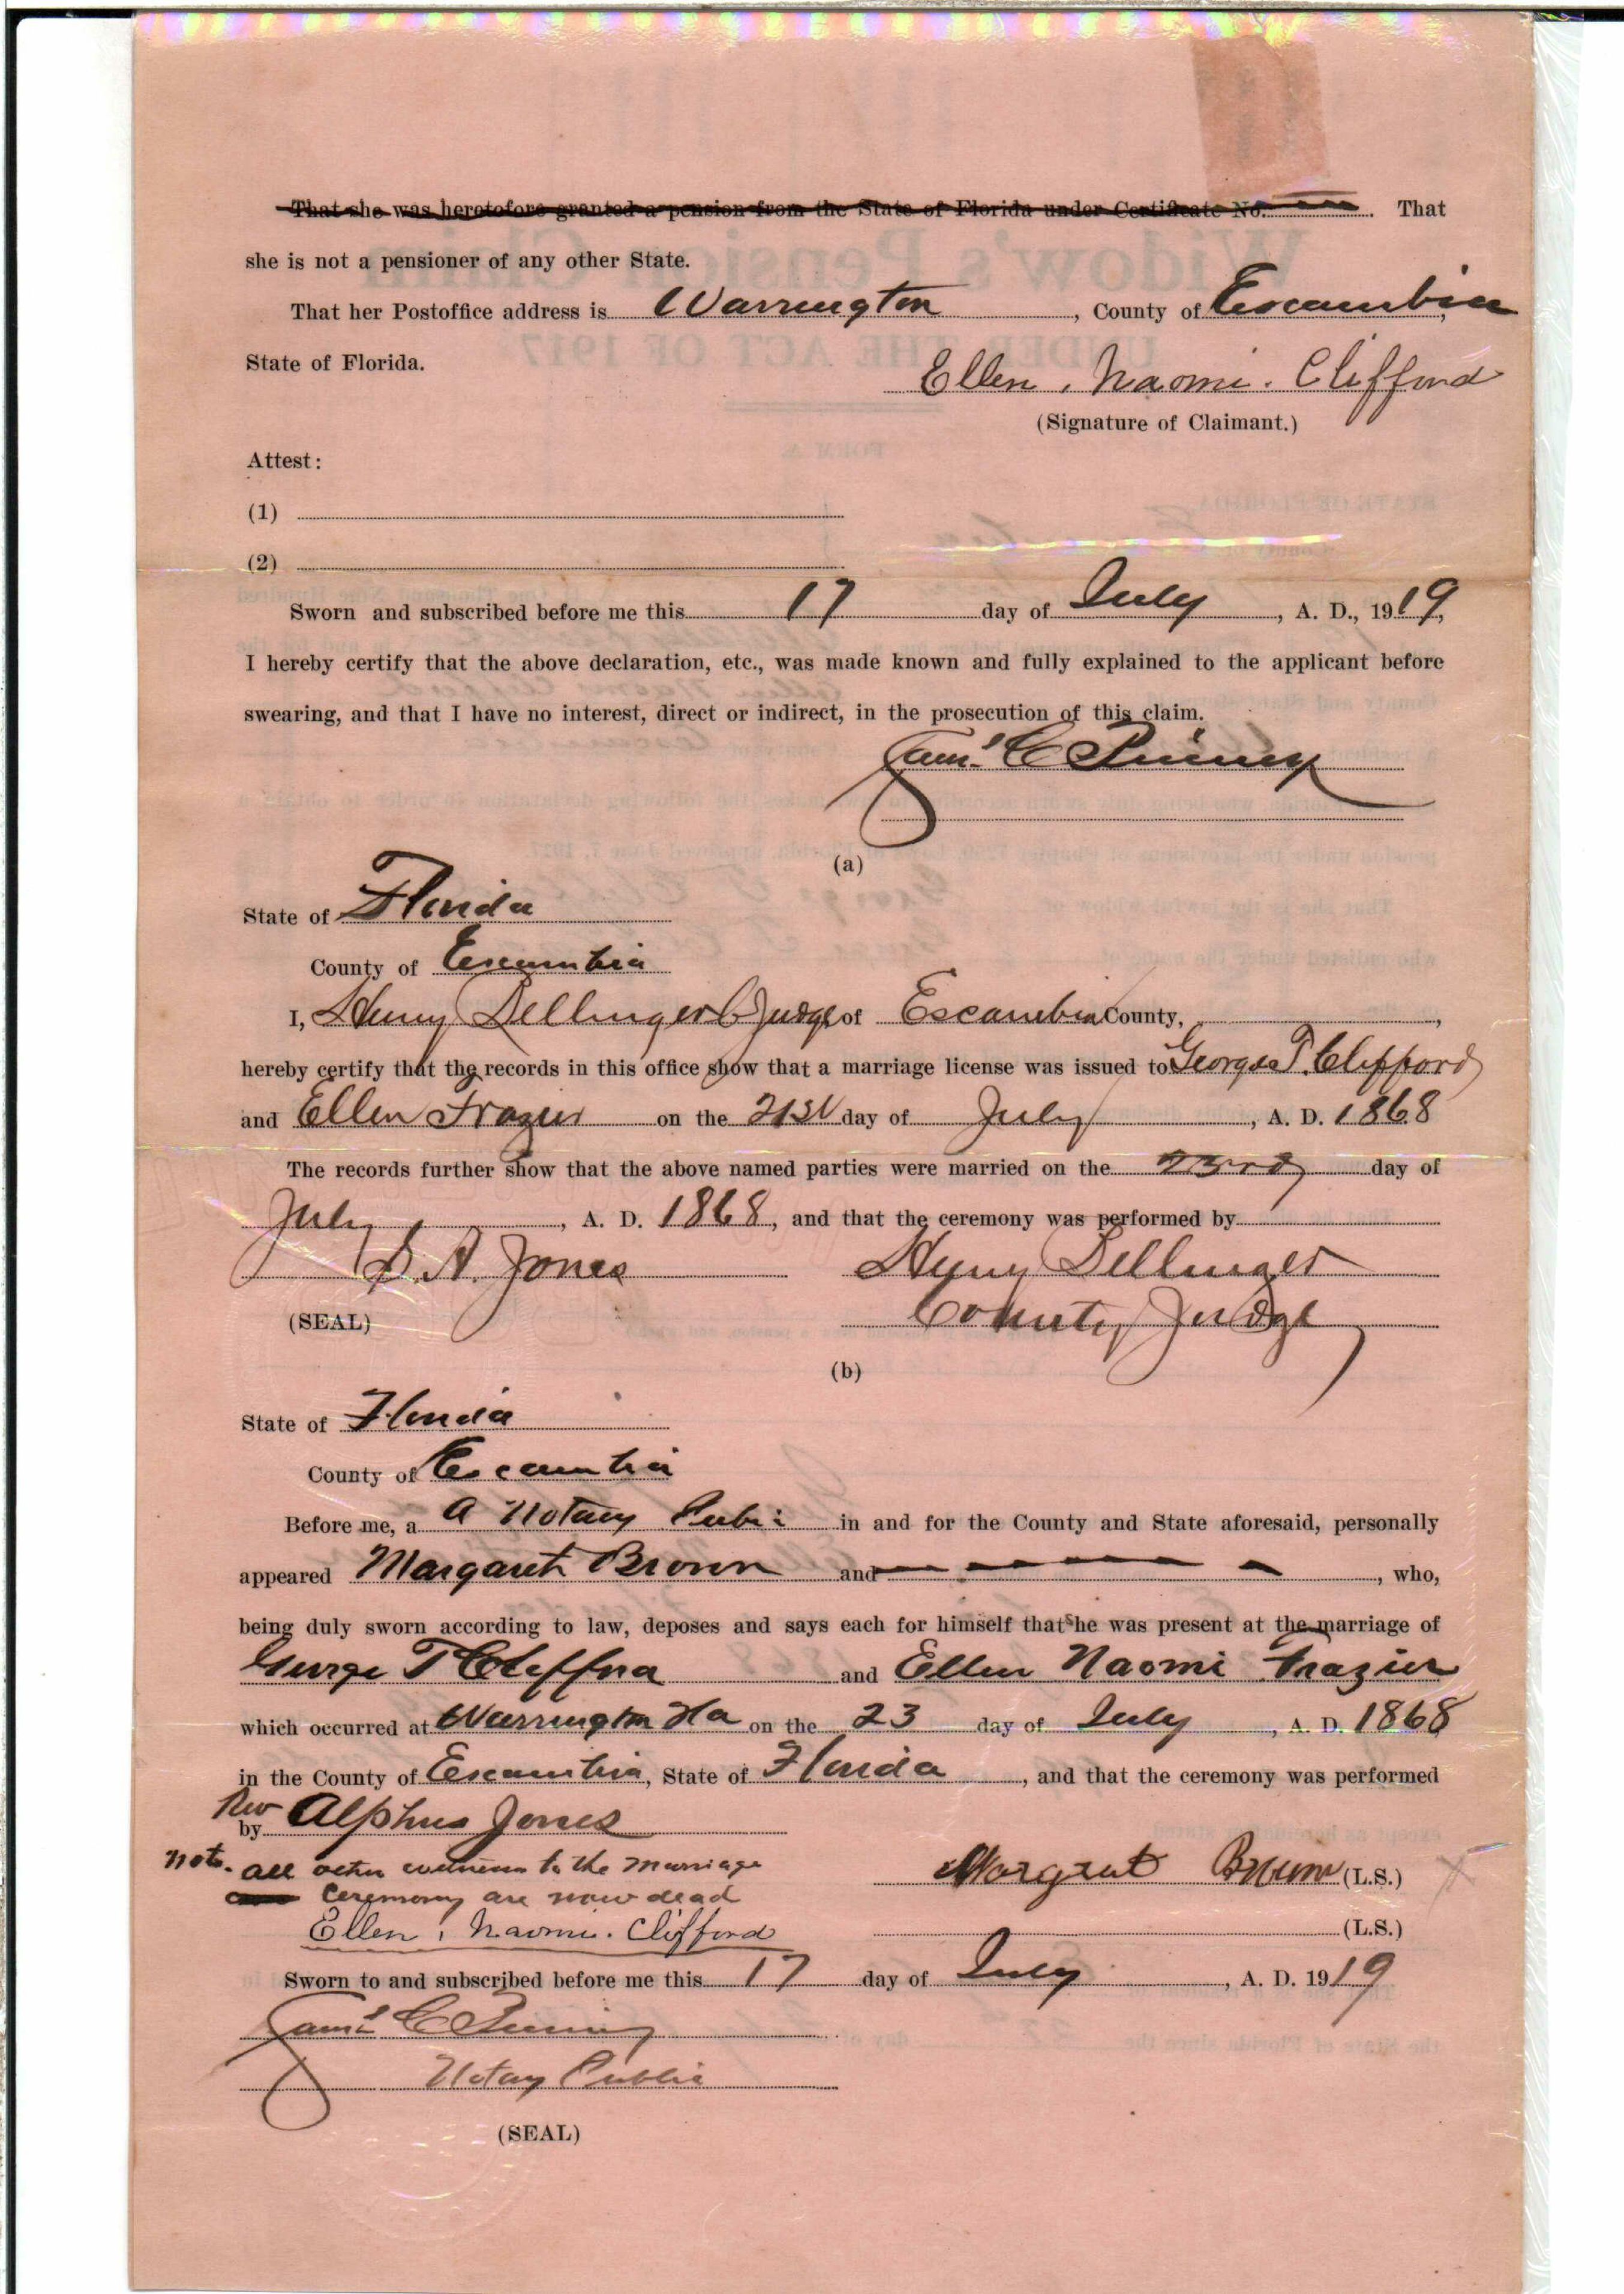 That she was heretofore granted a pension from the State of Florida under Certificate No. . That
she is not a pensioner of any other State.
That her Postoffice address is Warrington, County of Escambia,
State of Florida.
Ellen. Naomi. Clifford
(Signature of Claimant.)
Attest:
(1)
(2)
Sworn and subscribed before me this 17 day of July, A. D., 1919,
I hereby certify that the above declaration, etc., was made known and fully explained to the applicant before
swearing, and that I have no interest, direct or indirect, in the prosecution of this claim.
Saml C
(a)
State of Florida
County of Escambia
I, Henry Bellinger C Judge of Escambia County,
hereby certify that the records in this office show that a marriage license was issued to George T. Clifford
and Ellen Frazier on the 21st day of July, A. D. 1868
The records further show that the above named parties were married on the 23rd day of
July, A. D. 1868, and that the ceremony was performed by
A. Jones Henry Bellinger
(SEAL) County Judge
(b)
State of Florida
County of Escambia
Before me, a A Notary Public in and for the County and State aforesaid, personally
appeared Margaret Brown and — — — — —, who,
being duly sworn according to law, deposes and says each for himself that she was present at the marriage of
George T Clifford and Ellen Naomi Frazier
which occurred at Warrington Fla on the 23 day of July, A. D. 1868
in the County of Escambia, State of Florida, and that the ceremony was performed
by Rev Alphus Jones
Note. all other witness to the marriage
ceremony are now dead
Margret Brown (L.S.)
Ellen. Naomi. Clifford
(L.S.)
Sworn to and subscribed before me this 17 day of July, A. D. 1919
Saml C
Notary Public
(SEAL)